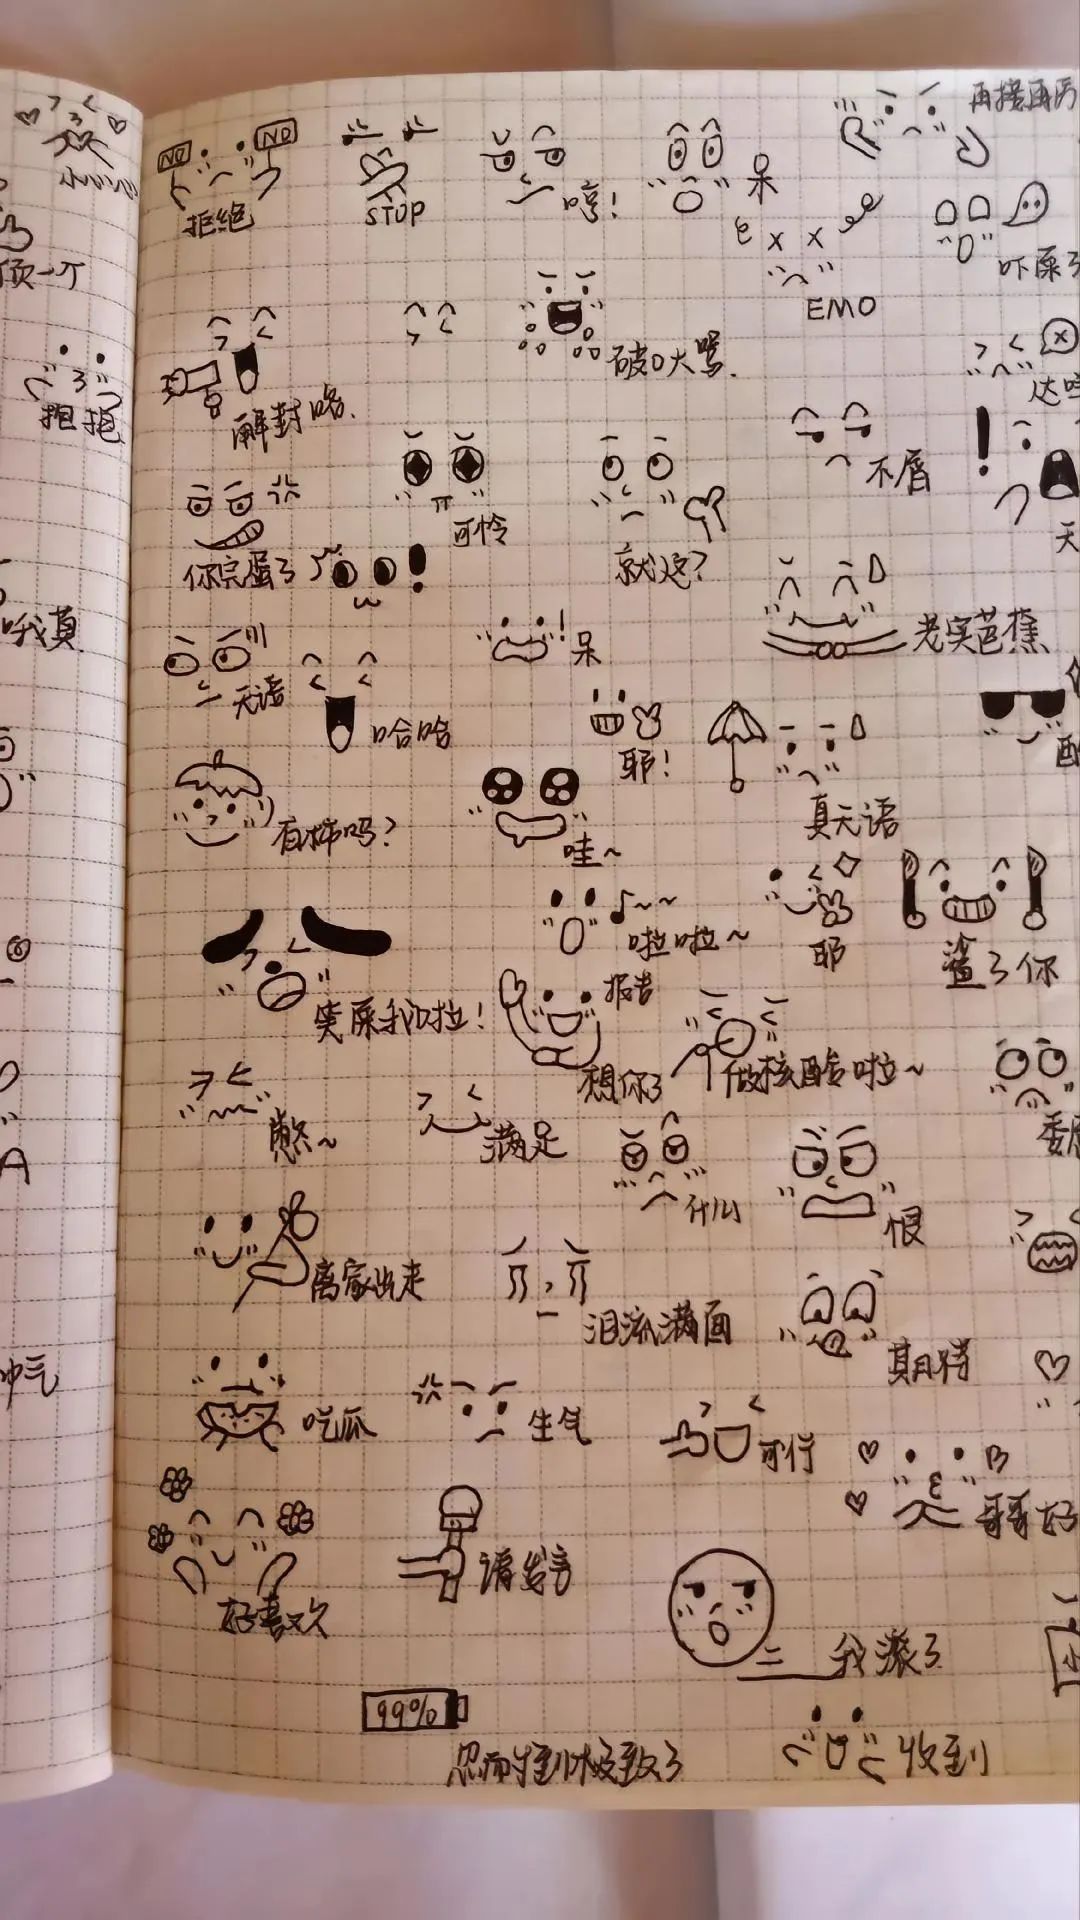 NO
NO
拒绝
STOP
哼!
呆
再接再厉
EMO
吓尿了
顶一个
解封咯.
破口大骂.
抱抱
不屑
可怜
就这?
你完蛋了
天
老实芭蕉
呆
无语
哈哈
耶!
真无语
有柿吗?
哇~
啦啦~
耶
鲨了你
笑尿我啦!
报告
想你了
做核酸啦~
憋~
满足
什么
恨
离家出走
泪流满面
期待
吃瓜
生气
可行
哥哥好
好喜欢
请发言
我派了
99%
忍耐到极致了
收到